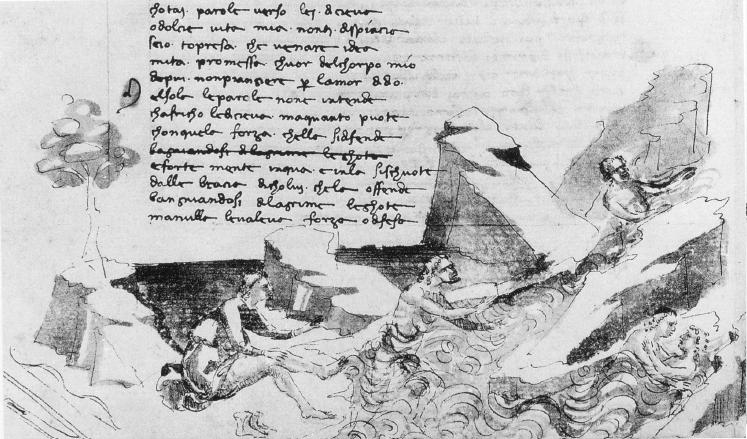 chotai · parole verso lej · diceva
odolcie vita mia · nonti · dispiacia
seio · topresa · che venere idea
mita · promessa · chuor delchorpo mio
depiu · nonpiangiere p lamor dido ·
elsola le parole none intende
chafricho ledicieva · maquanto puote
chonquela forza · chella sidifende
bagnandosi di lagrime le ghote
eforte mente inqua e inla sischuote
dalle bracia dicholui · chela offende
bangniandosi dlagrime leghote
manulla levaleva forza odifesa